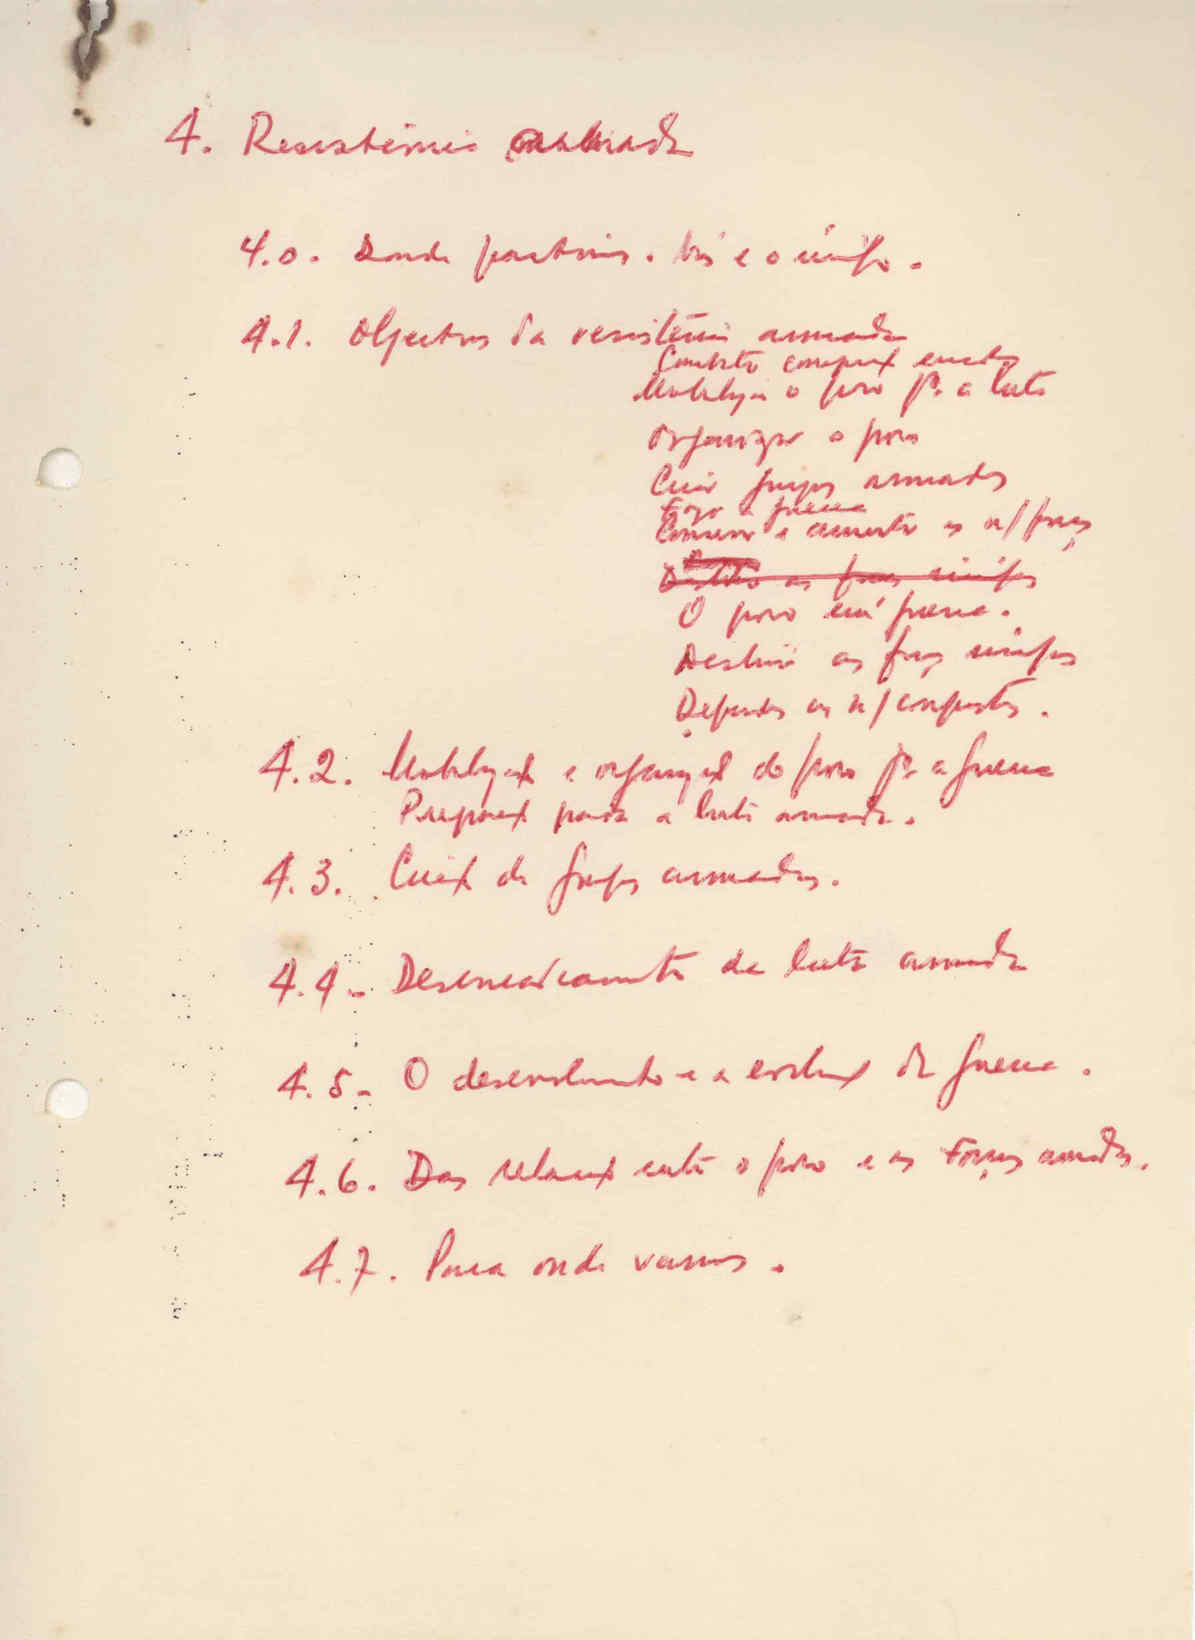 4. Resistência armada
4.0. Donde partimos. Nós e o inimigo.
4.1. Objectivos da resistência armada
Mobilizar o povo pª a luta
Organizar o povo
Criar grupos armados
Fazer a guerra
Conservar e aumentar as n/ forças
Destruir as forças inimigas
O povo em guerra.
Destruir as forças inimigas
Defender as n/ conquistas.
4.2. Mobilizaç. e organizaç. do povo pª a guerra
Preparaç. para a luta armada.
4.3. Criaç. de grupos armados.
4.4 - Desencadeamento da luta armada
4.5 - O desenvolvimento e a evoluç. da guerra.
4.6. Das relaç. entre o povo e as Forças armadas.
4.7. Para onde vamos.